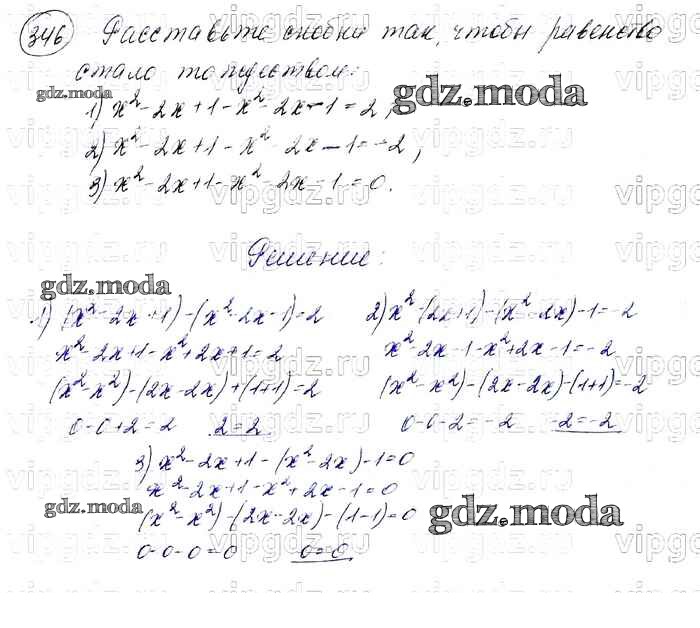 346 Расставьте скобки так, чтобы равенство
стало тождеством:
gdz.moda
1) x² - 2x + 1 - x² - 2x - 1 = 2;
gdz.moda
2) x² - 2x + 1 - x² - 2x - 1 = -2;
3) x² - 2x + 1 - x² - 2x - 1 = 0.
Решение:
gdz.moda
1) (x² - 2x + 1) - (x² - 2x - 1) = 2
x² - 2x + 1 - x² + 2x + 1 = 2
(x² - x²) - (2x - 2x) + (1 + 1) = 2
0 - 0 + 2 = 2 2 = 2
2) x² - (2x + 1) - (x² - 2x) - 1 = -2
x² - 2x - 1 - x² + 2x - 1 = -2
(x² - x²) - (2x - 2x) - (1 + 1) = -2
0 - 0 - 2 = -2 -2 = -2
3) x² - 2x + 1 - (x² - 2x) - 1 = 0
x² - 2x + 1 - x² + 2x - 1 = 0
gdz.moda
(x² - x²) - (2x - 2x) - (1 - 1) = 0
gdz.moda
0 - 0 - 0 = 0 0 = 0
vipgdz.ru